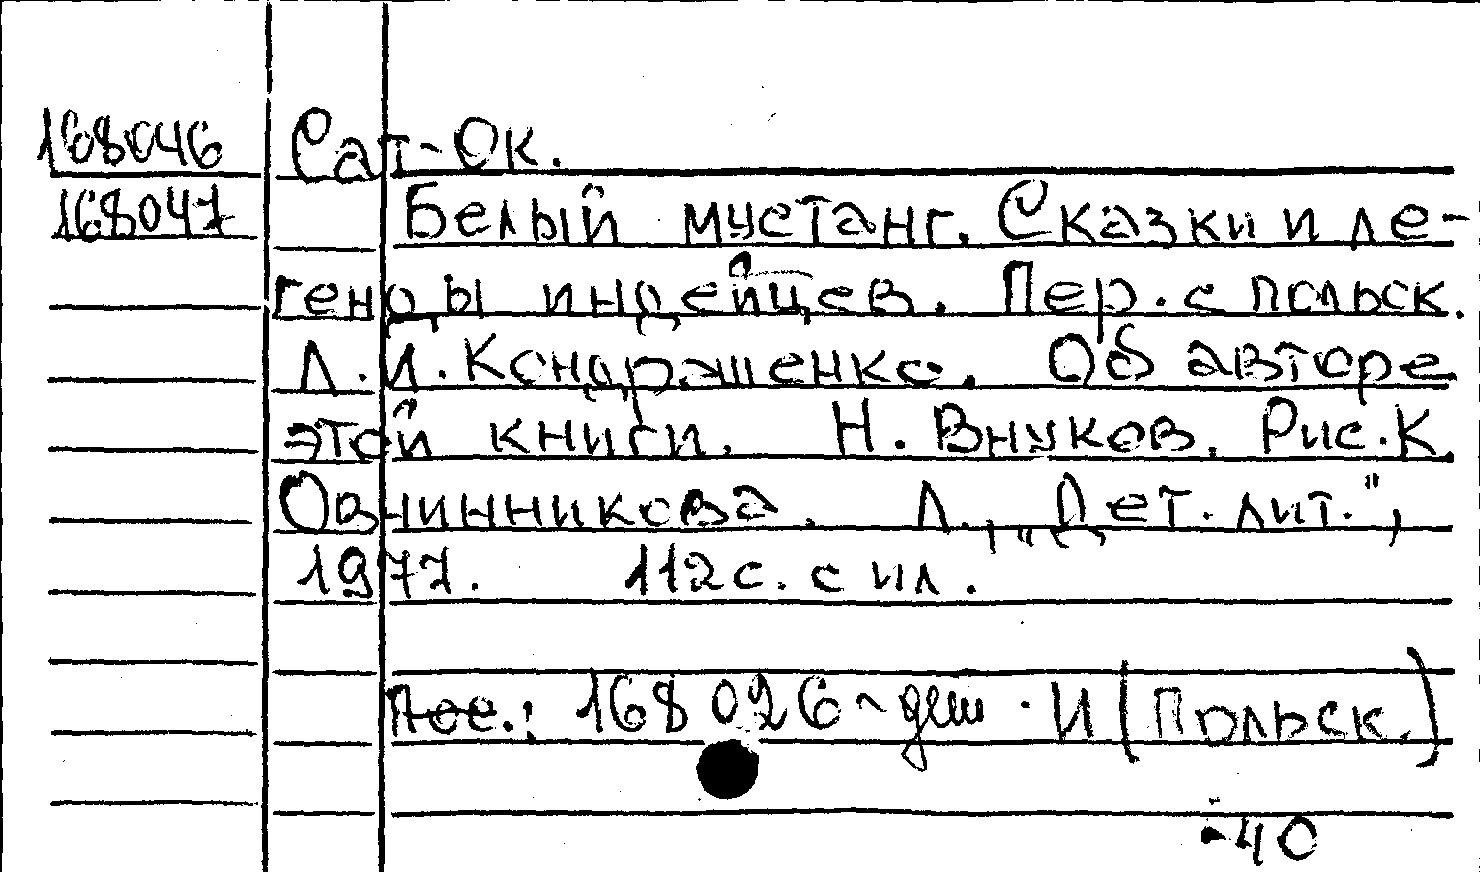 168046 Сат-Ок.
168047 Белый мустанг. Сказки и ле-
генды индейцев. Пер. с польск.
Л.И. Кондрашенко. Об авторе
этой книги. Н. Внуков. Рис. К.
Овчинникова. Л., "Дет. лит.",
1977. 112 с. с ил.
168026 - дет. И (Польск.)
-40